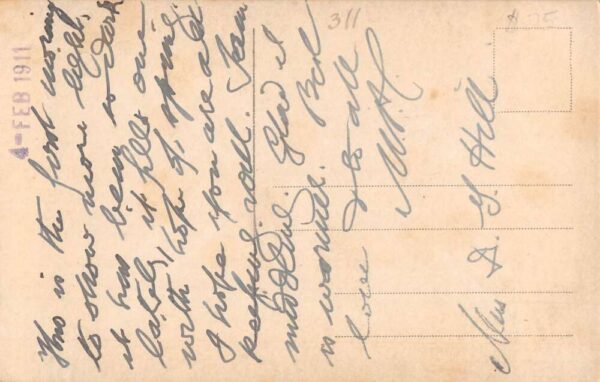 4 - FEB 1911
311
This is the first morning
to show more light,
it has been so dark
lately, it fills one
with hope of spring.
I hope you are all
keeping well. I am
middling. Glad it
is warmer. Best
love to all
Mrs D. G. Hill